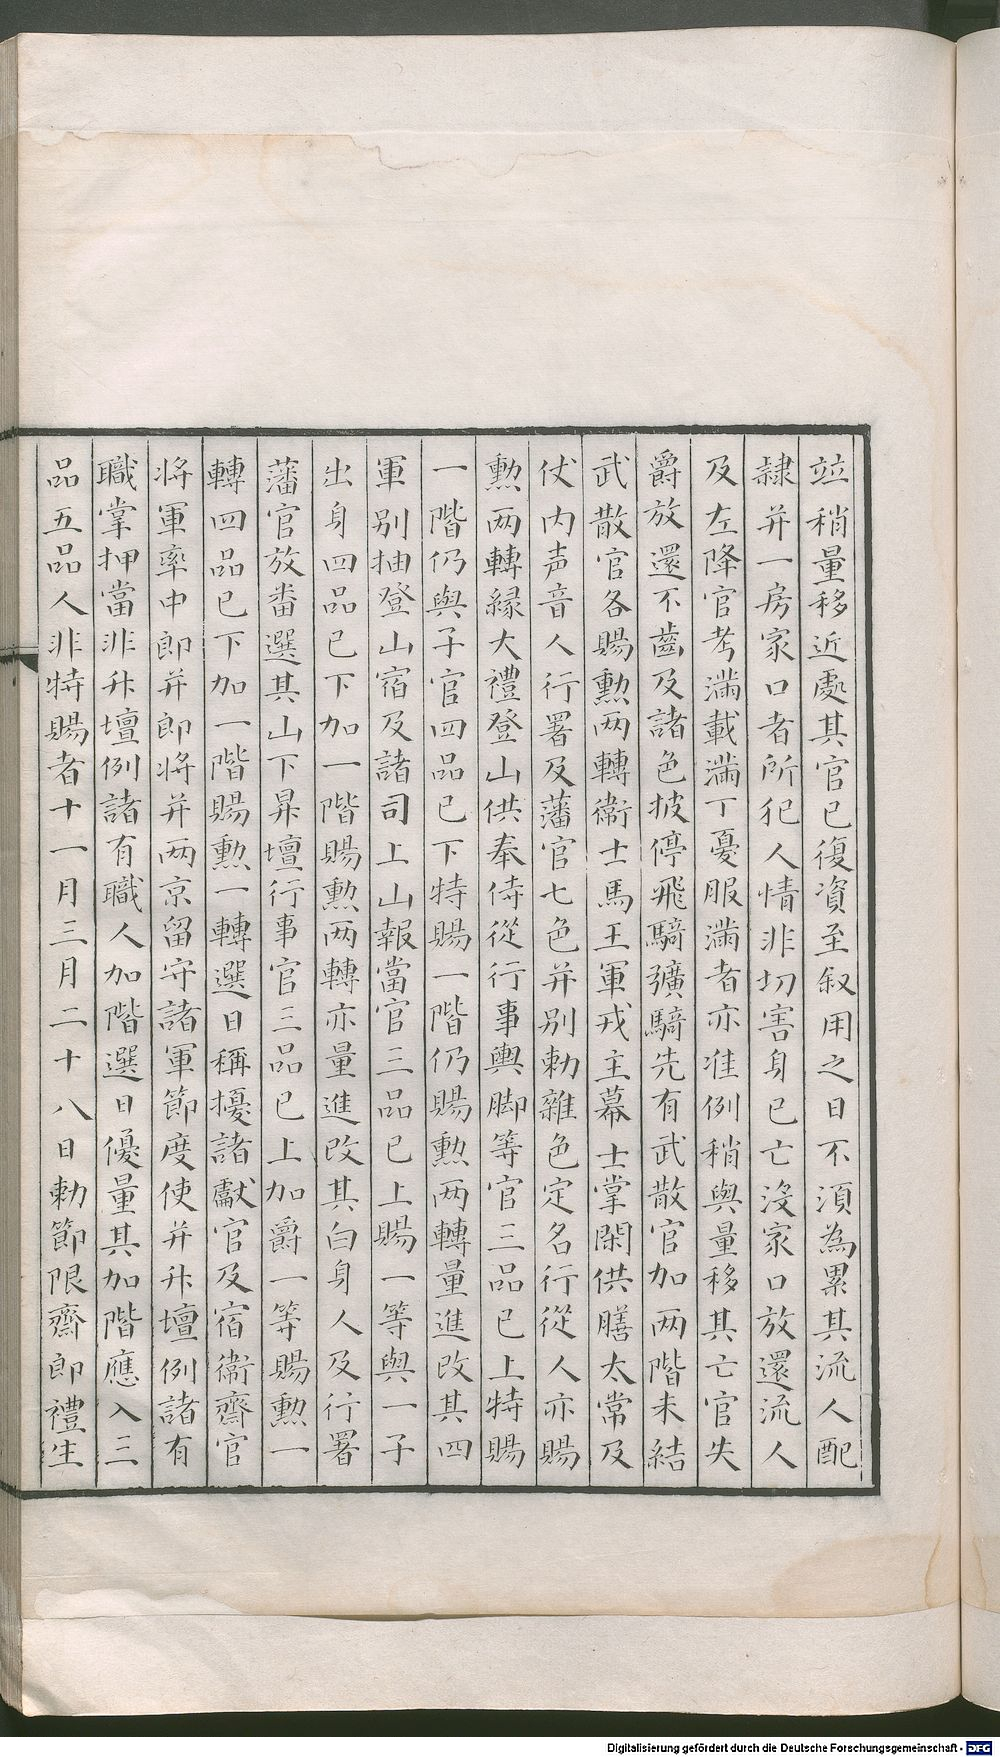 竝稍量移近處其官已復資至叙用之日不湏為累其流人配
隷并一房家口者所犯人情非切害身已亡沒家口放還流人
及左降官考滿載滿丁憂服滿者亦准例稍與量移其亡官失
爵放還不齒及諸色披停飛騎彍騎先有武散官加两階未結
武散官各賜勲两轉衛士馬王軍戎主幕士掌閑供膳太常及
仗内声音人行署及藩官七色并别勅雜色定名行從人亦賜
勲两轉緣大禮登山供奉侍從行事輿脚等官三品已上特賜
一階仍與子官四品已下特賜一階仍賜勲两轉量進改其四
軍别抽登山宿及諸司上山報當官三品已上賜一等與一子
出身四品已下加一階賜勲两轉亦量進改其白身人及行署
藩官放畨選其山下昇壇行事官三品已上加爵一等賜勲一
轉四品已下加一階賜勲一轉選日稱擾諸獻官及宿衛齋官
将軍率中郎并郎将并两京留守諸軍節度使并升壇例諸有
職掌押當非升壇例諸有職人加階選日優量其加階應入三
品五品人非特賜者十一月三月二十八日勅節限齋郎禮生
Digitalisierung gefördert durch die Deutsche Forschungsgemeinschaft - DFG